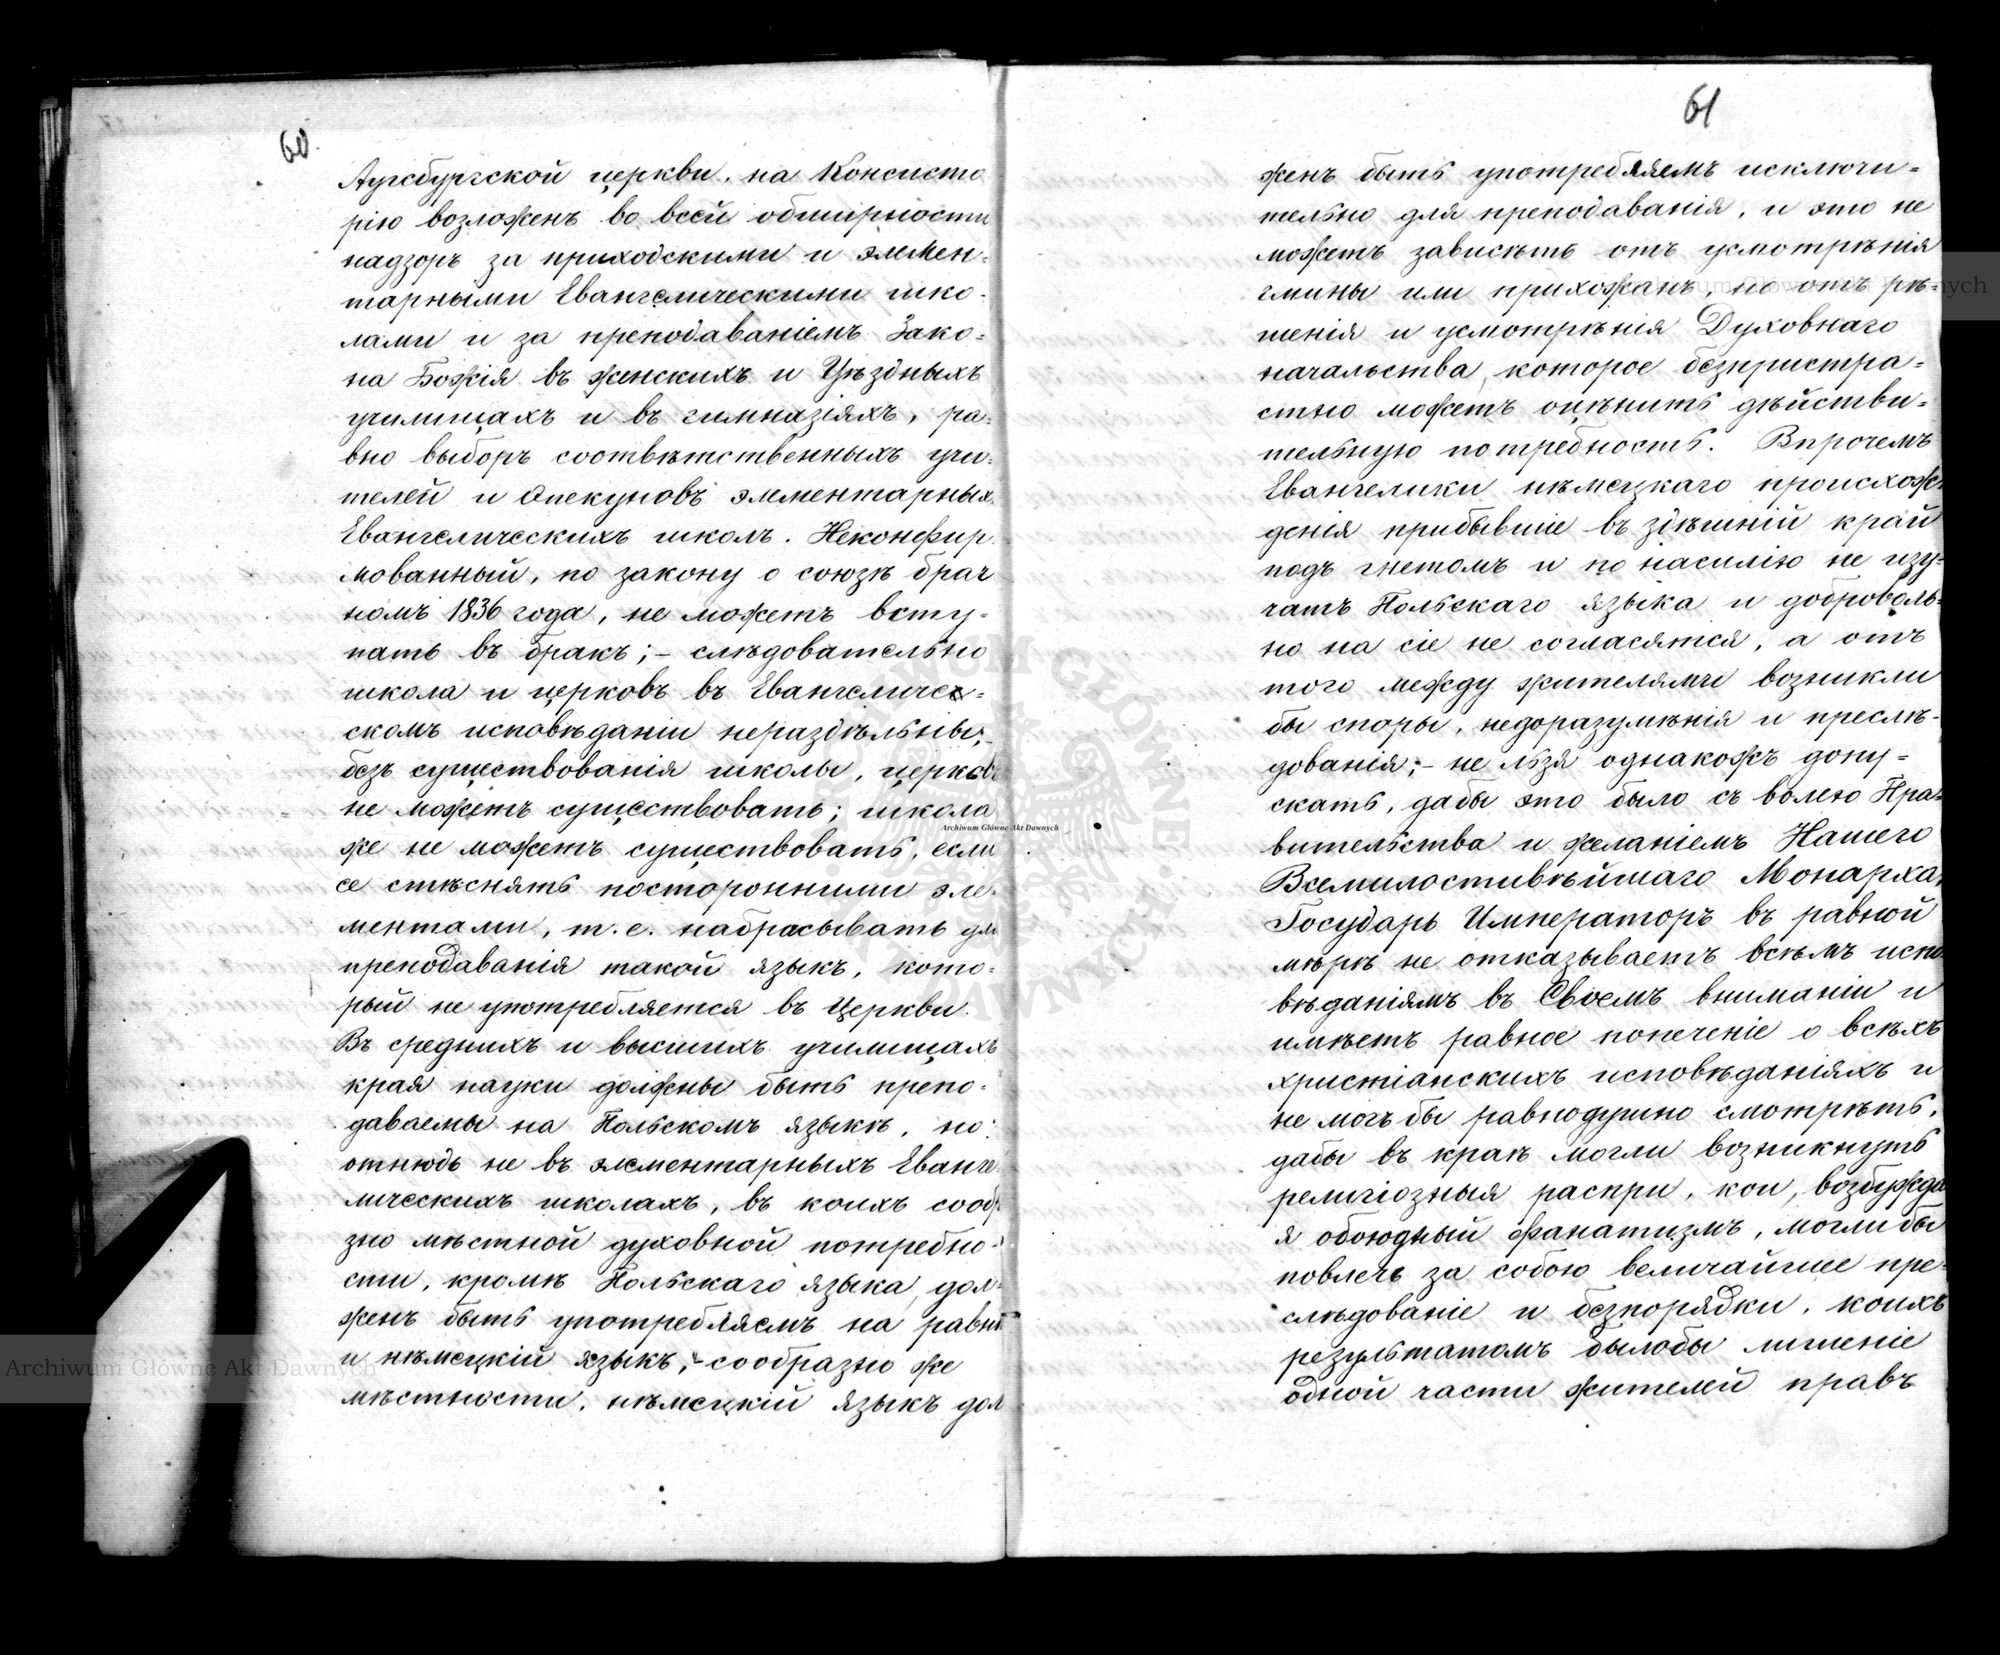 60.
Аугсбургской церкви, на Консисто
рію возложенъ во всей обширности
надзоръ за приходскими и элемен-
тарными Евангелическими шко-
лами и за преподаваніемъ Зако-
на Божія въ женскихъ и Уѣздныхъ
училищахъ и въ гимназіяхъ, ра-
вно выборъ соотвѣтственныхъ учи-
телей и Опекуновъ элементарныхъ
Евангелическихъ школъ. Неконфир
мованный, по закону о союзѣ брач
номъ 1836 года, не можетъ всту-
пать въ бракъ; – слѣдовательно
школа и церковь въ Евангеличе-
скомъ исповѣданіи нераздѣльны;
безъ существованія школы, церковь
не можетъ существовать; школа
же не можетъ существовать, если
ее стѣснять посторонними эле-
ментами, т. е. набрасывать для
преподаванія такой языкъ, кото-
рый не употребляется въ Церкви.
Въ среднихъ и высшихъ училищахъ
края науки должны быть препо-
даваемы на Польскомъ языкѣ, но
отнюдь не въ элементарныхъ Еванге
лическихъ школахъ, въ коихъ сооб
зно мѣстной духовной потребно-
сти, кромѣ Польскаго языка, дол-
женъ быть употребляемъ на равнѣ
и нѣмецкій языкъ; – сообразно же
мѣстности, нѣмецкій языкъ дол
61
женъ быть употребляемъ исключи-
тельно для преподаванія, и это не
можетъ зависѣть отъ усмотрѣнія
гмины или прихожанъ, но отъ рѣ-
шенія и усмотрѣнія Духовнаго
начальства, которое безпристра-
стно можетъ оцѣнить дѣйстви-
тельную потребность. Впрочемъ
Евангелики нѣмецкаго происхож-
денія прибывшіе въ здѣшній край
подъ гнетомъ и по насилію не изу-
чатъ Польскаго языка и доброволь-
но на сіе не согласятся, а отъ
того между жителями возникли
бы споры, недоразумѣнія и преслѣ-
дованія; – не льзя однакожъ допу-
скать, дабы это было съ волею Пра-
вительства и желаніемъ Нашего
Всемилостивѣйшаго Монарха.
Государь Императоръ въ равной
мѣрѣ не отказываетъ всѣмъ испо
вѣданіямъ въ Своемъ вниманіи и
имѣетъ равное попеченіе о всѣхъ
христіанскихъ исповѣданіяхъ и
не могъ бы равнодушно смотрѣть,
дабы въ краѣ могли возникнуть
религіозныя распри, кои, возбужда
я обоюдный фанатизмъ, могли бы
повлечь за собою величайшее пре-
слѣдованіе и безпорядки, коихъ
результатомъ былобы лишеніе
одной части жителей правъ
Archiwum Główne Akt Dawnych
Archiwum Główne Akt Dawnych